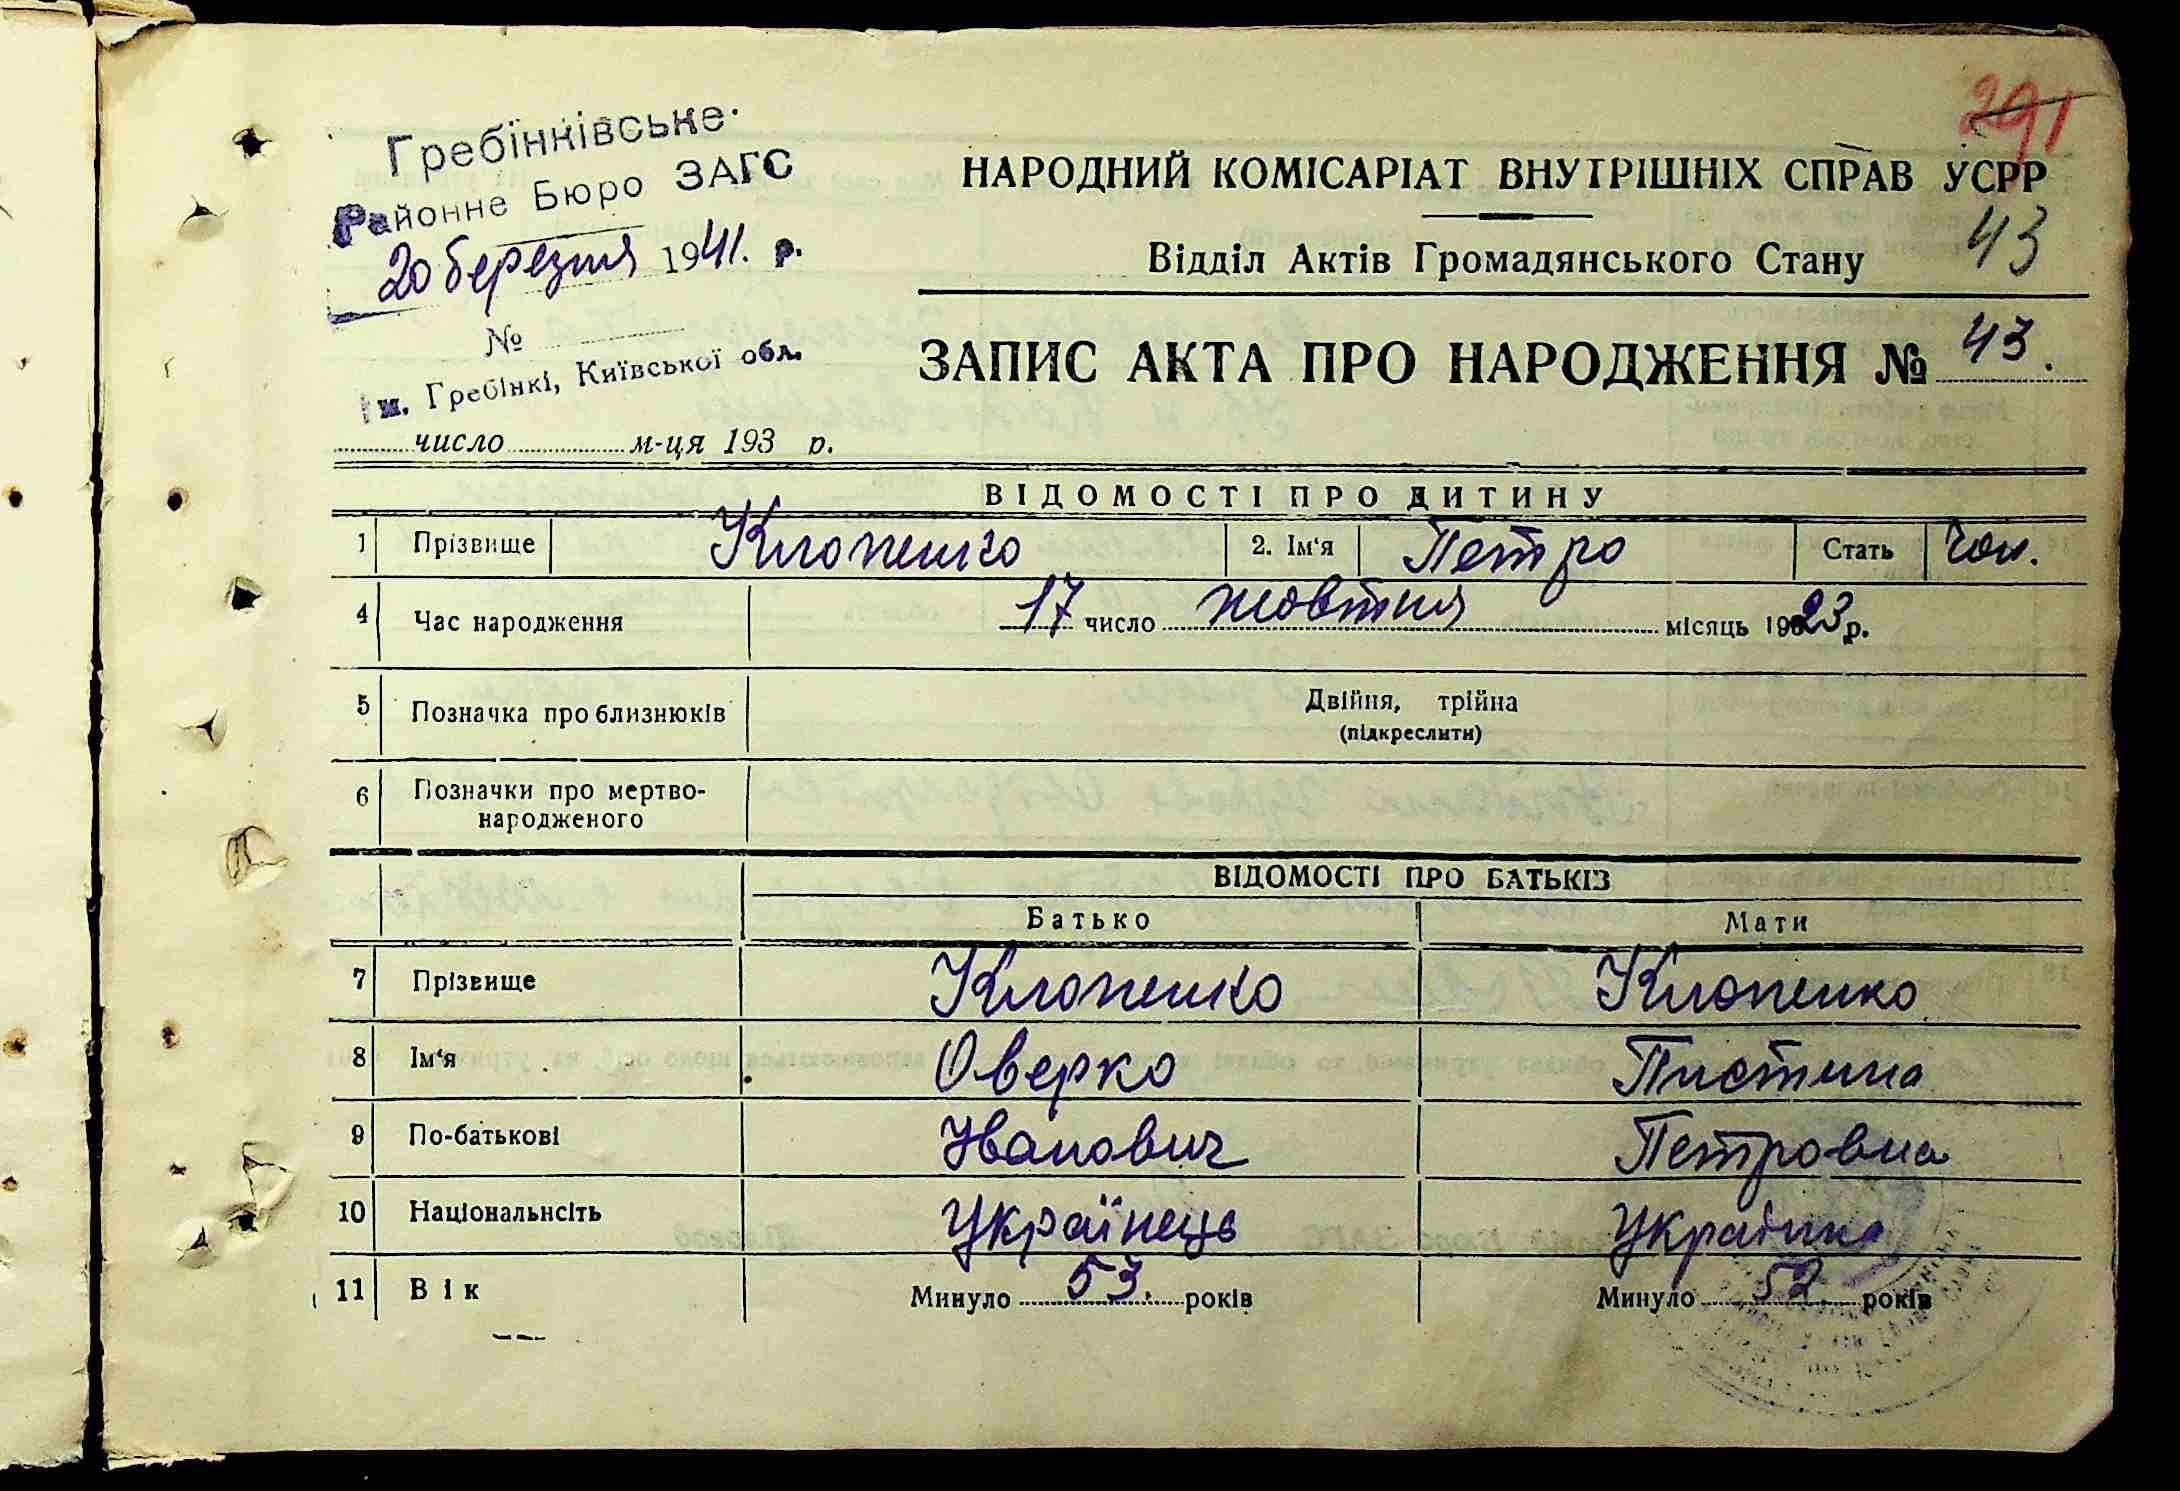 291
Гребінківське
Районне Бюро ЗАГС
20 березня 1941. р.
№
м. Гребінкі, Київської обл.
число м-ця 193 р.
НАРОДНИЙ КОМІСАРІАТ ВНУТРІШНІХ СПРАВ УСРР
43
Відділ Актів Громадянського Стану
ЗАПИС АКТА ПРО НАРОДЖЕННЯ № 43.
ВІДОМОСТІ ПРО ДИТИНУ
1 Прізвище Клопенко 2. Ім‘я Петро Стать Чол.
4 Час народження 17 число жовтня місяць 1923 р.
5 Позначка про близнюків Двійня, трійна
(підкреслити)
6 Позначки про мертво-
народженого
ВІДОМОСТІ ПРО БАТЬКІВ
Батько Мати
7 Прізвище Клопенко Клопенко
8 Ім‘я Оверко Пистина
9 По-батькові Іванович Петровна
10 Національнсіть Українець Українка
11 Вік Минуло 53. років Минуло 52. років